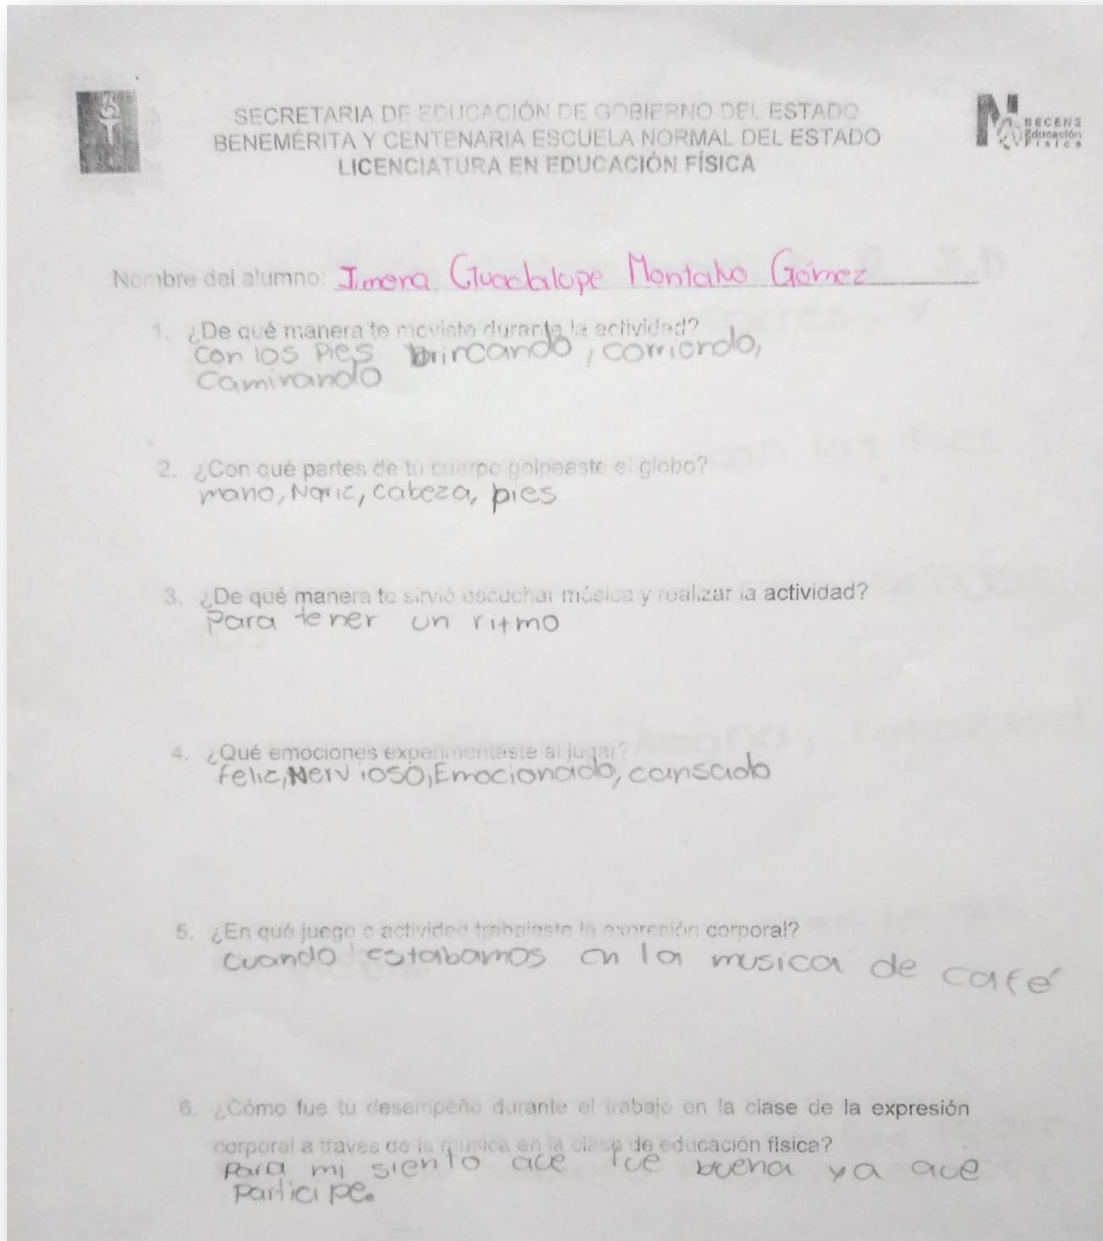 SECRETARIA DE EDUCACIÓN DE GOBIERNO DEL ESTADO
BENEMÉRITA Y CENTENARIA ESCUELA NORMAL DEL ESTADO
LICENCIATURA EN EDUCACIÓN FÍSICA
BECENE
Educación
Física
Nombre del alumno: Jimena Guadalupe Montalvo Gómez
1. ¿De qué manera te moviste durante la actividad?
con los Pies brincando, corriendo,
Caminando
2. ¿Con qué partes de tu cuerpo golpeaste el globo?
mano, Nariz, cabeza, pies
3. ¿De qué manera te sirvió escuchar música y realizar la actividad?
Para tener un ritmo
4. ¿Qué emociones experimentaste al jugar?
feliz, Nervioso, Emocionado, cansado
5. ¿En qué juego o actividad trabajaste la expresión corporal?
cuando estabamos en la musica de café
6. ¿Cómo fue tu desempeño durante el trabajo en la clase de la expresión
corporal a través de la música en la clase de educación física?
Para mi siento que fue buena ya que
participe.